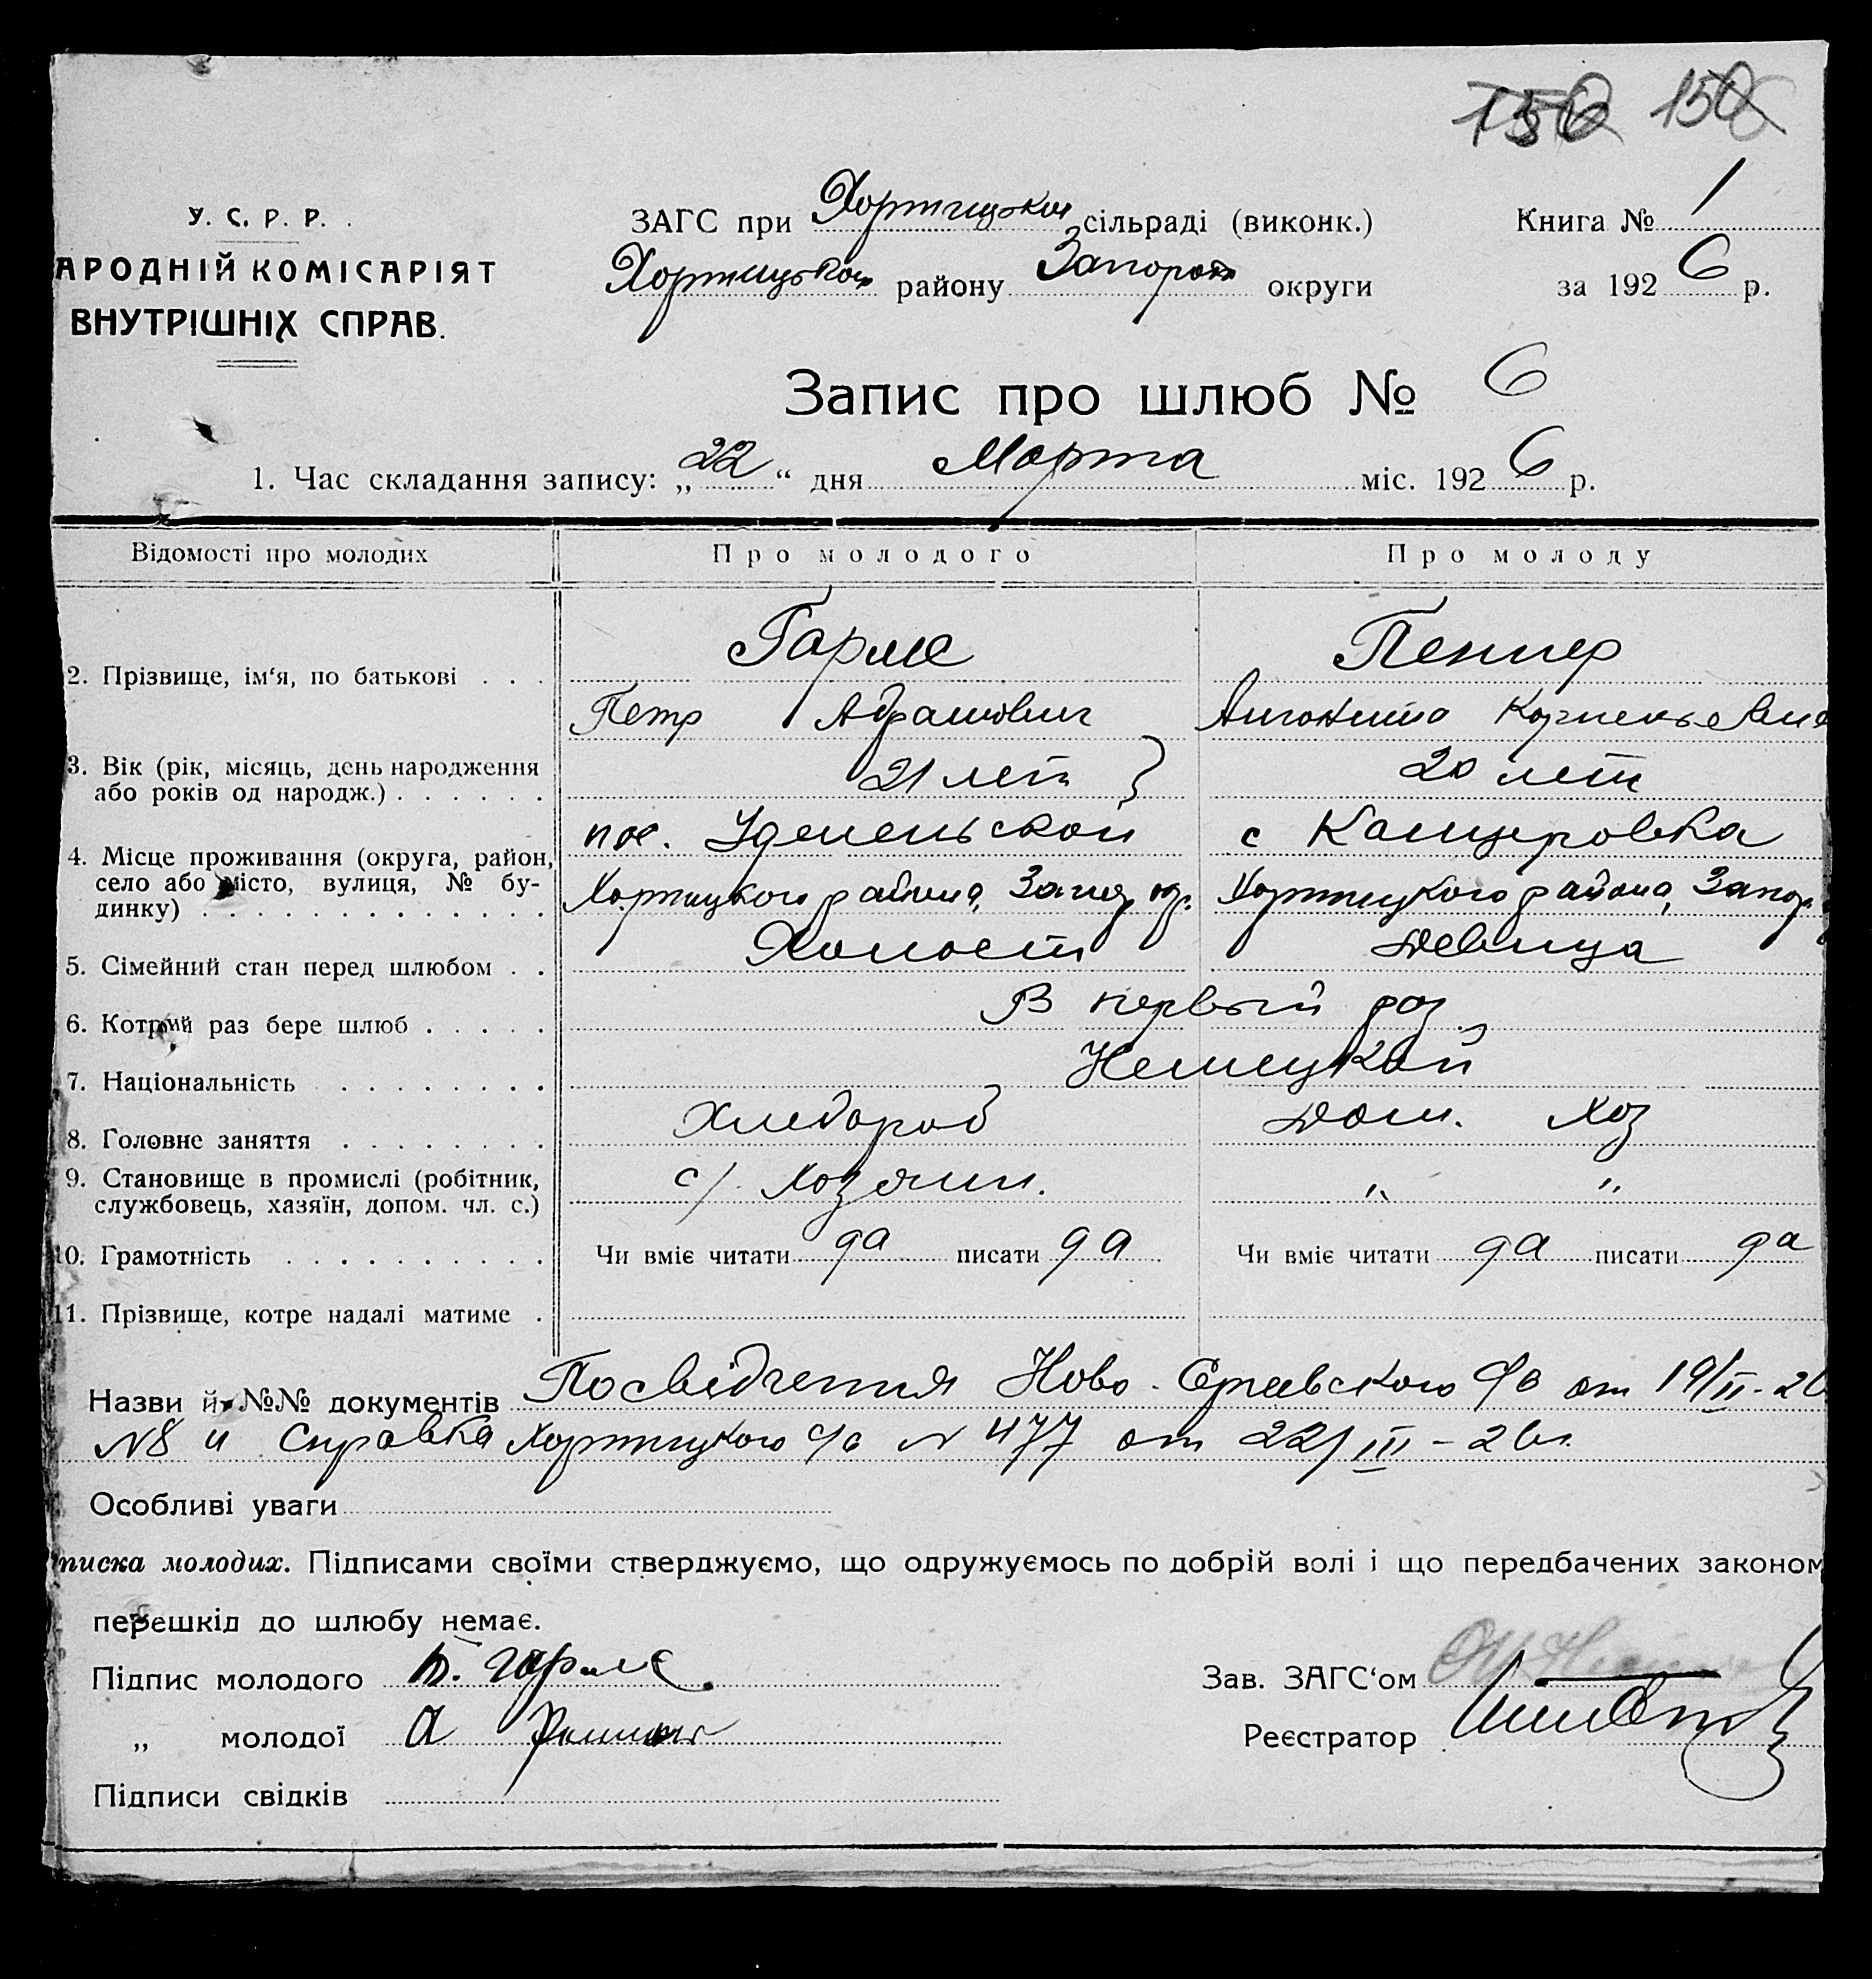 150 150
У. С. Р. Р.
АРОДНІЙ КОМІСАРІЯТ
ВНУТРІШНІХ СПРАВ.
ЗАГС при Хортицькои сільраді (виконк.)
Хортицькои району Запороз округи
Книга № 1
за 192 6 р.
Запис про шлюб № 6
1. Час складання запису: „ 22 “ дня Марта міс. 192 6 р.
Відомості про молодих Про молодого Про молоду
Гармс Пеннер
2. Прізвище, ім‘я, по батькові . . .
Петр Абрамович Корнельевна
3. Вік (рік, місяць, день народження 21 лет 20 лет
або років од народж.) . . . . . .
пос. с Канцеровка
4. Місце проживання (округа, район,
село або місто, вулиця, № бу- Хортицкого района, Запор окр. Хортицкого района, Запор.
динку) . . . . . . . . . . . . .
5. Сімейний стан перед шлюбом . . Холост Девица
6. Котрий раз бере шлюб . . . . . В первый раз
7. Національність . . . . . . . . Немецкой
8. Головне заняття . . . . . . . . Хлебороб Дом. Хоз
9. Становище в промислі (робітник, с/. Хозяин. " "
службовець, хазяїн, допом. чл. с.)
10. Грамотність . . . . . . . . . . Чи вміє читати да писати да Чи вміє читати да писати да
11. Прізвище, котре надалі матиме .
Назви й №№ документів Посвідчення Ново- с/с от 19/II-26
№8 и справка Хортицкого с/с № 477 от 22/III-26г.
Особливі уваги
писка молодих. Підписами своїми стверджуємо, що одружуємось по добрій волі і що передбачених законом
перешкід до шлюбу немає.
Підпис молодого П. Гармс Зав. ЗАГС‘ом
„ молодої А Реєстратор
Підписи свідків